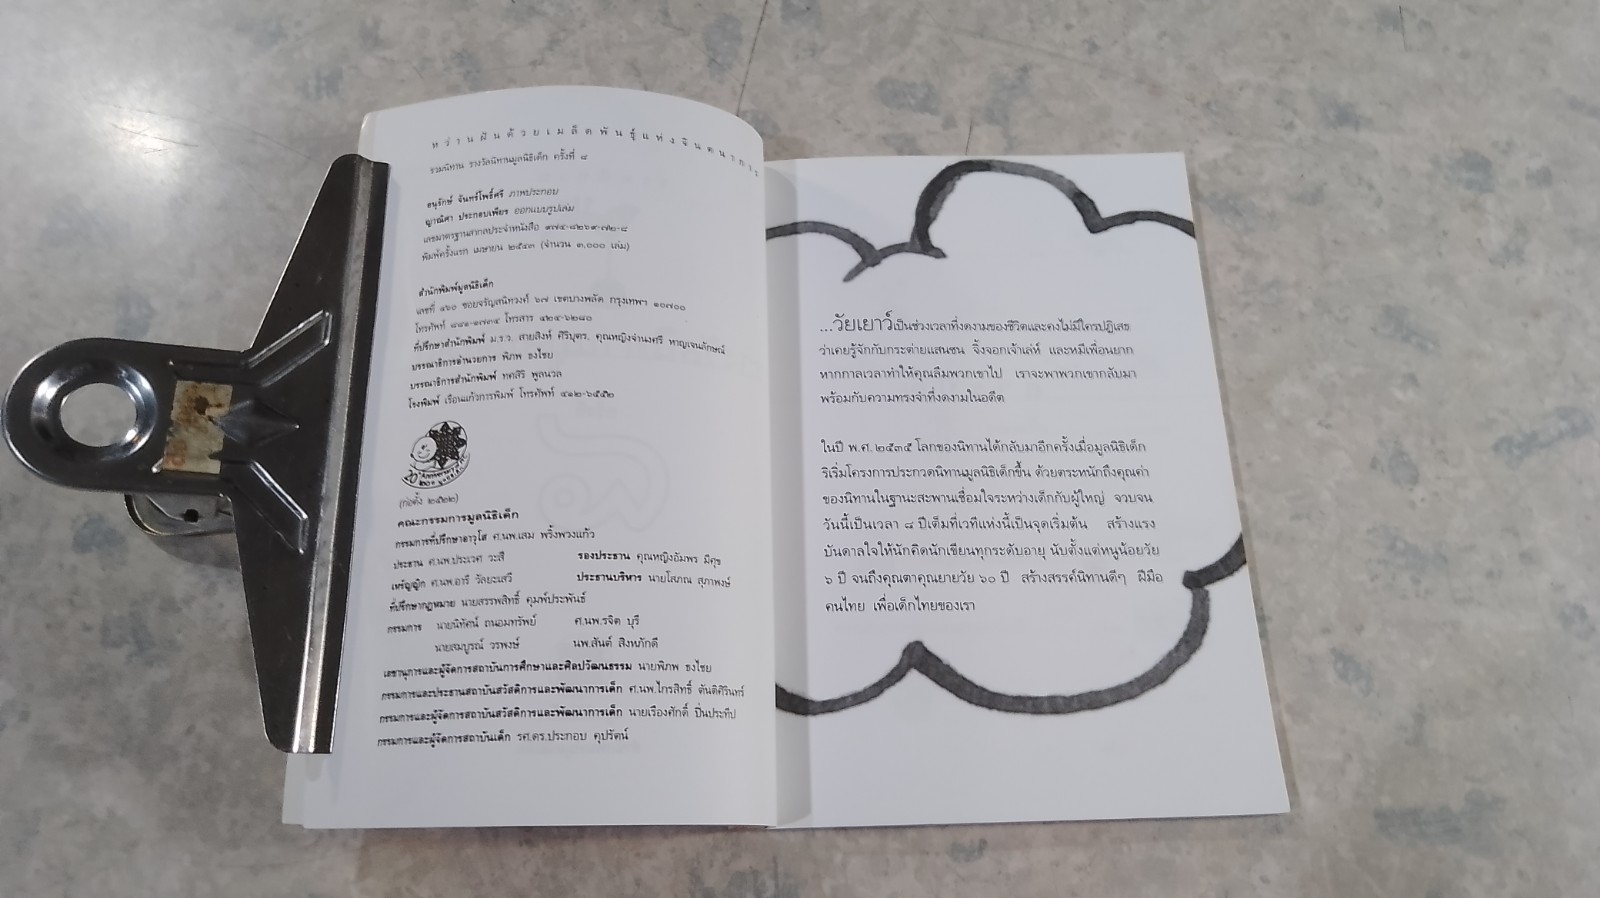 หว่านฝันด้วยเมล็ดพันธุ์แห่งจินตนาการ
รวมนิทาน รางวัลนิทานมูลนิธิเด็ก ครั้งที่ ๘
อนุรักษ์ จันทร์โพธิ์ศรี ภาพประกอบ
ญาณิศา ประกอบเพียร ออกแบบรูปเล่ม
เลขมาตรฐานสากลประจำหนังสือ ๙๗๔-๘๒๖๙-๗๒-๘
พิมพ์ครั้งแรก เมษายน ๒๕๔๓ (จำนวน ๓,๐๐๐ เล่ม)
สำนักพิมพ์มูลนิธิเด็ก
เลขที่ ๔๖๐ ซอยจรัญสนิทวงศ์ ๖๗ เขตบางพลัด กรุงเทพฯ ๑๐๗๐๐
โทรศัพท์ ๘๘๑-๑๗๓๔ โทรสาร ๔๒๔-๖๒๘๐
ที่ปรึกษาสำนักพิมพ์ ม.ร.ว. สายสิงห์ ศิริบุตร, คุณหญิงจำนงศรี หาญเจนลักษณ์
บรรณาธิการอำนวยการ พิภพ ธงไชย
บรรณาธิการสำนักพิมพ์ ทศสิริ พูลนวล
โรงพิมพ์ เรือนแก้วการพิมพ์ โทรศัพท์ ๔๑๒-๖๕๕๒
20 Anniversary
(ก่อตั้ง ๒๕๒๒)
คณะกรรมการมูลนิธิเด็ก
กรรมการที่ปรึกษาอาวุโส ศ.นพ.เสม พริ้งพวงแก้ว
ประธาน ศ.นพ.ประเวศ วะสี รองประธาน คุณหญิงอัมพร มีศุข
เหรัญญิก ศ.นพ.อารี วัลยะเสวี ประธานบริหาร นายโสภณ สุภาพงษ์
ที่ปรึกษากฎหมาย นายสรรพสิทธิ์ คุมพ์ประพันธ์
กรรมการ นายนิทัศน์ ถนอมทรัพย์ ศ.นพ.รจิต บุรี
นายสมบูรณ์ วรพงษ์ นพ.สันต์ สิงหภักดี
เลขานุการและผู้จัดการสถาบันการศึกษาและศิลปวัฒนธรรม นายพิภพ ธงไชย
กรรมการและประธานสถาบันสวัสดิการและพัฒนาการเด็ก ศ.นพ.ไกรสิทธิ์ ตันติศิรินทร์
กรรมการและผู้จัดการสถาบันสวัสดิการและพัฒนาการเด็ก นายเรืองศักดิ์ ปิ่นประทีป
กรรมการและผู้จัดการสถาบันเด็ก รศ.ดร.ประกอบ คุปรัตน์
...วัยเยาว์เป็นช่วงเวลาที่งดงามของชีวิตและคงไม่มีใครปฏิเสธ
ว่าเคยรู้จักกับกระต่ายแสนซน จิ้งจอกเจ้าเล่ห์ และหมีเพื่อนยาก
หากกาลเวลาทำให้คุณลืมพวกเขาไป เราจะพาพวกเขากลับมา
พร้อมกับความทรงจำที่งดงามในอดีต
ในปี พ.ศ. ๒๕๓๕ โลกของนิทานได้กลับมาอีกครั้งเมื่อมูลนิธิเด็ก
ริเริ่มโครงการประกวดนิทานมูลนิธิเด็กขึ้น ด้วยตระหนักถึงคุณค่า
ของนิทานในฐานะสะพานเชื่อมใจระหว่างเด็กกับผู้ใหญ่ จวบจน
วันนี้เป็นเวลา ๘ ปีเต็มที่เวทีแห่งนี้เป็นจุดเริ่มต้น สร้างแรง
บันดาลใจให้นักคิดนักเขียนทุกระดับอายุ นับตั้งแต่หนูน้อยวัย
๖ ปี จนถึงคุณตาคุณยายวัย ๖๐ ปี สร้างสรรค์นิทานดีๆ ฝีมือ
คนไทย เพื่อเด็กไทยของเรา